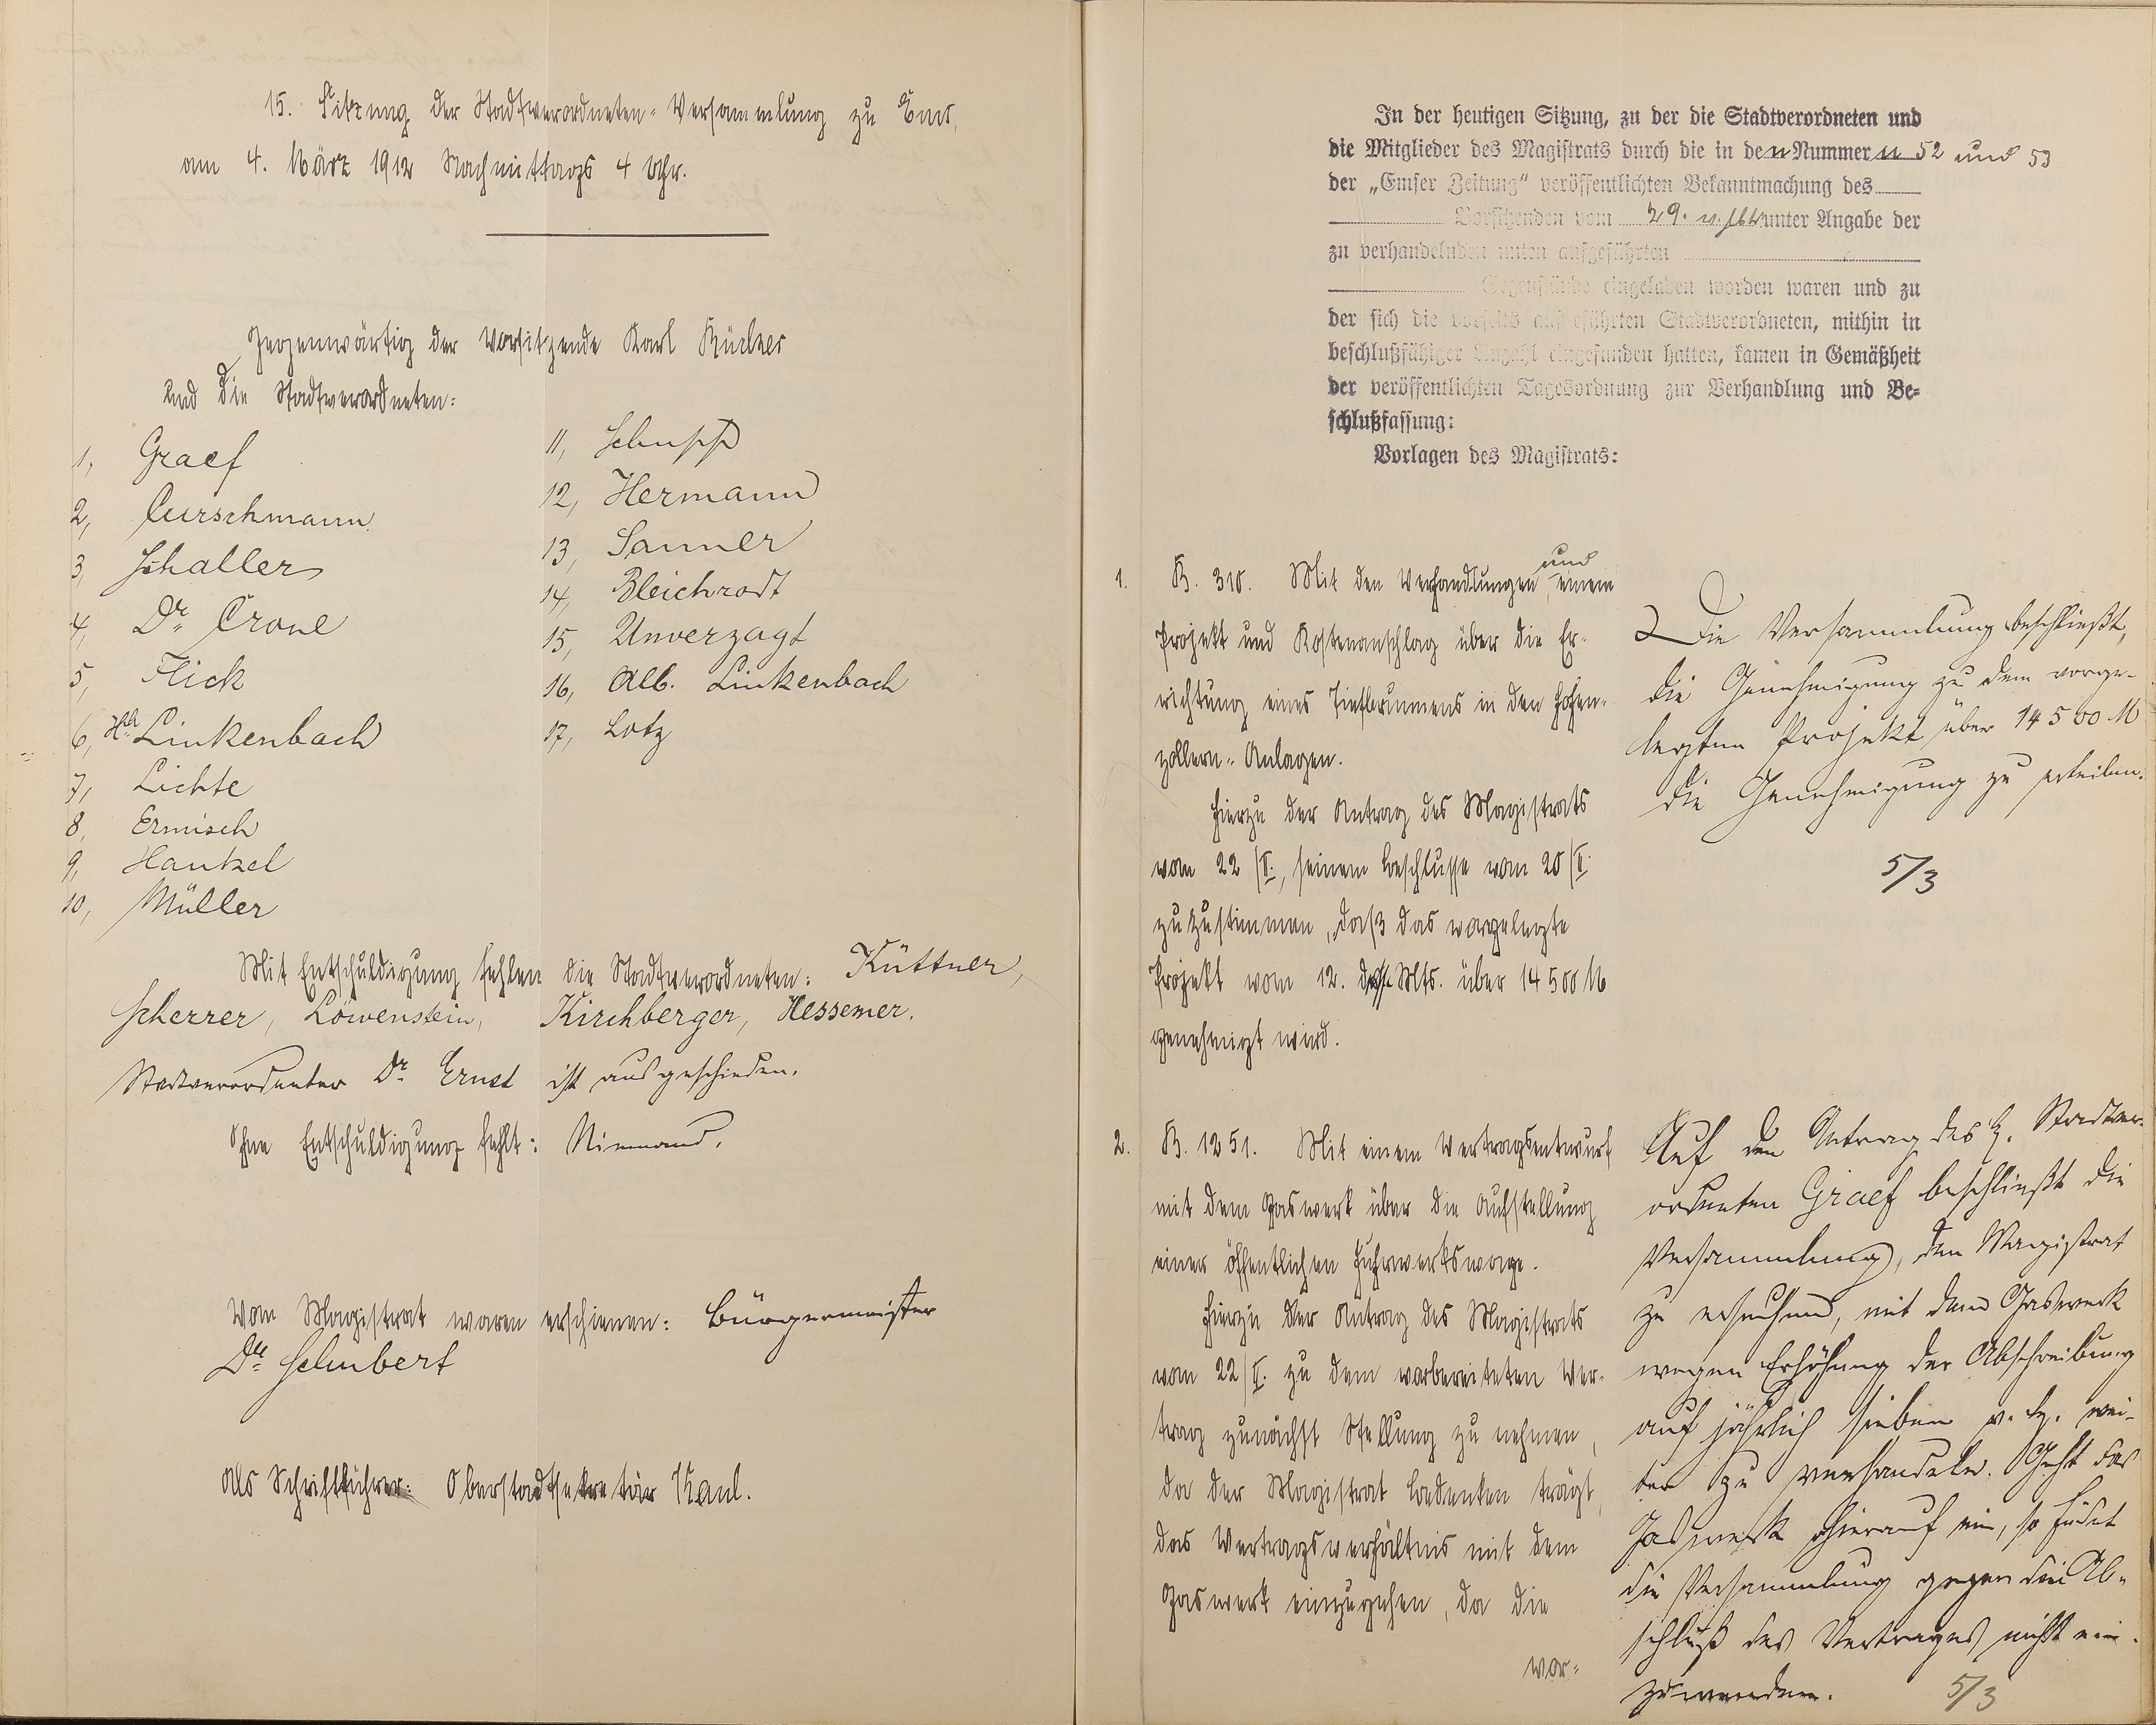 15. Sitzung der Stadtverordneten-Versammlung zu Ems,
am 4. März 1912 Nachmittags 4 Uhr.
Gegenwärtig der Vorsitzende Karl Rücker
und die Stadtverordneten:
1, Graef
2, Curschmann
3, Schaller
4, Dr. Crone
5, Flick
6, Linkenbach
7, Lichte
8, Ermisch
9, Hankel
10, Müller
11, Schupp
12, Hermann
13, Sanner
14, Bleichrodt
15, Unverzagt
16, Alb. Linkenbach
17, Lotz
Mit Entschuldigung fehlen die Stadtverordneten: Küttner,
Scherrer, Löwenstein, Kirchberger, Hessemer.
Stadtverordneter Dr. Ernst ist ausgeschieden.
Ohne Entschuldigung fehlt: Niemand.
Vom Magistrat waren erschienen: Bürgermeister
Dr. Schubert
Als Schriftführer: Oberstadtsekretär Kaul.
In der heutigen Sitzung, zu der die Stadtverordneten und
die Mitglieder des Magistrats durch die in den Nummern 52 und 53
der „Emser Zeitung“ veröffentlichten Bekanntmachung des
Vorsitzenden vom 29. v. Mts unter Angabe der
zu verhandelnden unten aufgeführten
Gegenstände eingeladen worden waren und zu
der sich die vorseits aufgeführten Stadtverordneten, mithin in
beschlußfähiger Anzahl eingefunden hatten, kamen in Gemäßheit
der veröffentlichten Tagesordnung zur Verhandlung und Be-
schlußfassung:
Vorlagen des Magistrats:
1. B. 310. Mit den Verhandlungen und einem
Projekt und Kostenanschlag über die Er-
richtung eines Tiefbrunnens in den Hohen-
zollern-Anlagen.
Hierzu der Antrag des Magistrats
vom 22/II., seinem Beschlusse vom 20/II.
zuzustimmen, daß das vorgelegte
Projekt vom 12. Mts. über 14500 M
genehmigt wird.
Die Versammlung beschließt,
die Genehmigung zu dem vorge-
legten Projekt über 14500 M
die Genehmigung zu erteilen.
5/3
2. B. 1251. Mit einem Vertragsentwurf
mit dem Gaswerk über die Aufstellung
einer öffentlichen Fuhrwerkswage.
Hierzu der Antrag des Magistrats
vom 22/II. zu dem vorbereiteten Ver-
trag zunächst Stellung zu nehmen,
da der Magistrat Bedenken trägt,
das Vertragsverhältnis mit dem
Gaswerk einzugehen, da die
vor-
Auf den Antrag des H. Stadtver-
ordneten Graef beschließt die
Versammlung, den Magistrat
zu ersuchen, mit dem Gaswerk
wegen Erhöhung der Abschreibung
auf jährlich sieben v. H. wei-
ter zu verhandeln. Geht das
Gaswerk hierauf ein, so findet
die Versammlung gegen den Ab-
schluß des Vertrages nichts ein-
zuwenden.
5/3